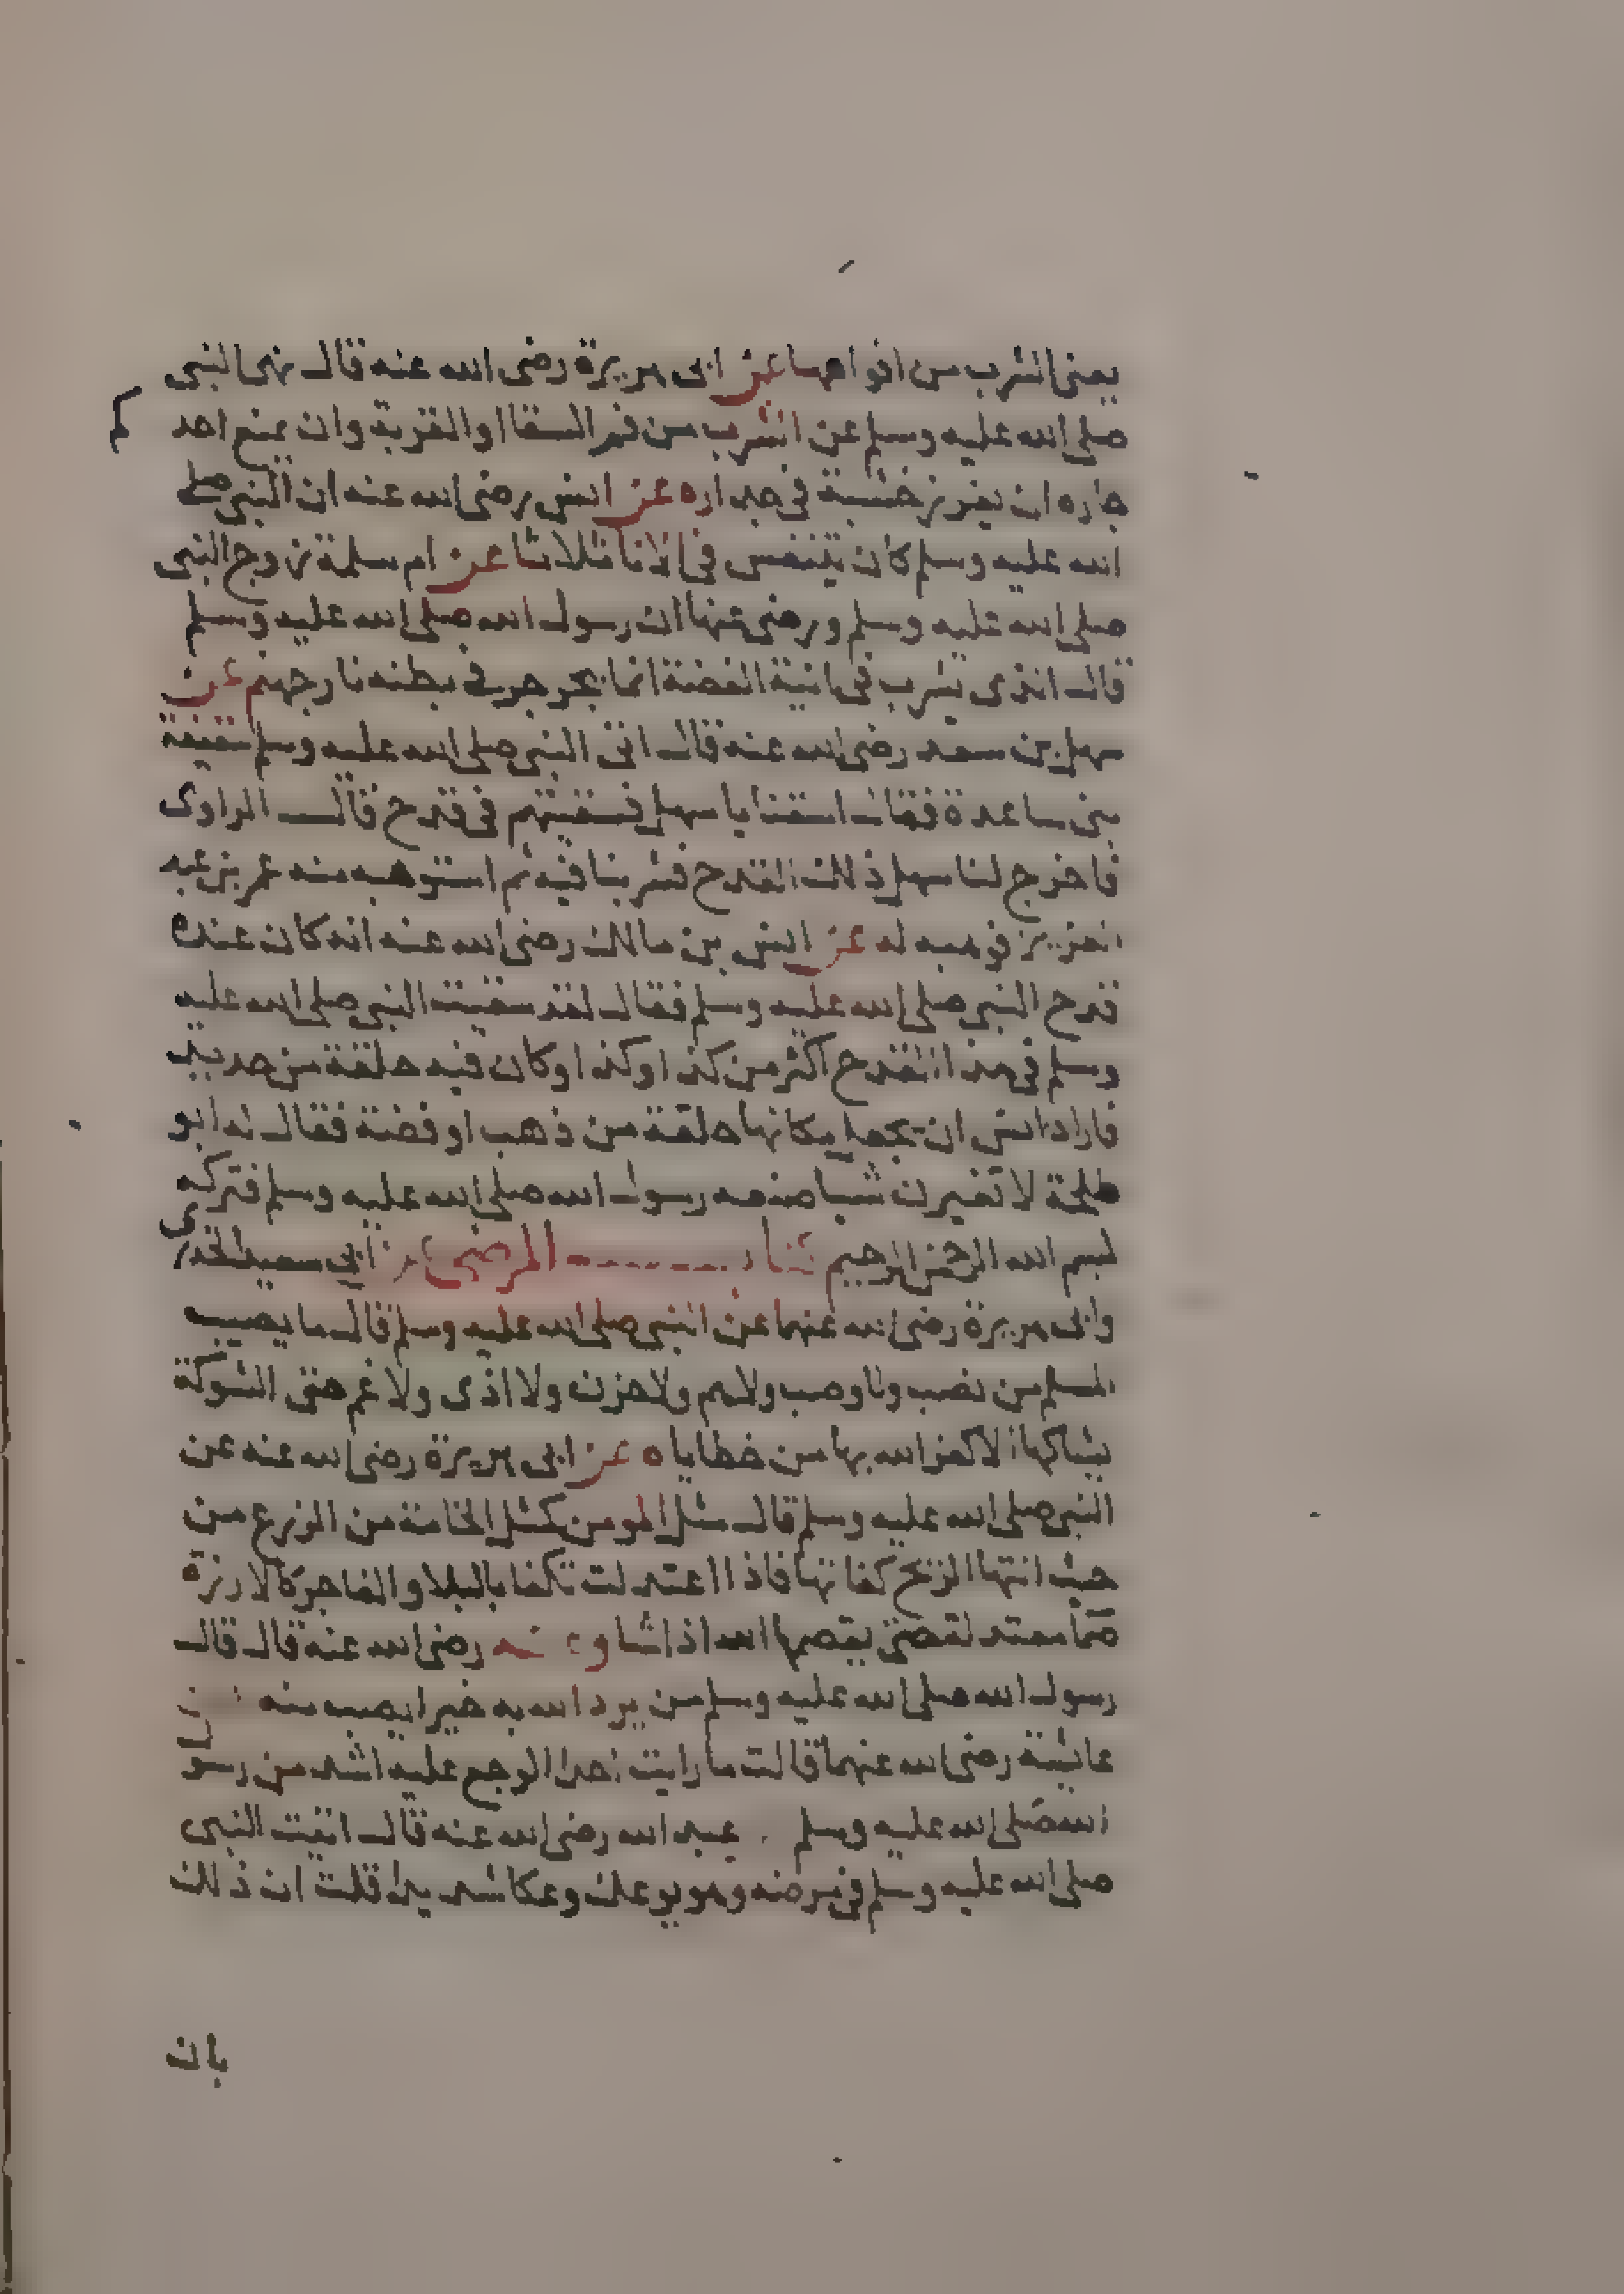 يعني الشرب من افواهها عن ابي هريرة رضي الله عنه قال نهى النبي
صلى الله عليه وسلم عن الشرب من فم السقا او القربة وان يمنع احدكم
جاره ان يغرز خشبة في جداره عن انس رضي الله عنه ان النبي صلى
الله عليه وسلم كان يتنفس في الانا ثلاثا عن ام سلمة زوج النبي
صلى الله عليه وسلم ورضي عنها ان رسول الله صلى الله عليه وسلم
قال الذي يشرب في انية الفضة انما يجرجر في بطنه نار جهنم عن
سهل بن سعد رضي الله عنه قال اتى النبي صلى الله عليه وسلم سقيفة
بني ساعدة فقال اسقنا يا سهل فسقيتهم في قدح قال الراوي
فاخرج لنا سهل ذلك القدح فشربنا فيه ثم استوهبه منه عمر بن عبد
العزيز فوهبه له عن انس بن مالك رضي الله عنه انه كان عنده
قدح النبي صلى الله عليه وسلم فقال لقد سقيت النبي صلى الله عليه
وسلم في هذا القدح اكثر من كذا وكذا وكان فيه حلقة من حديد
فاراد انس ان يجعل مكانها حلقة من ذهب او فضة فقال له ابو
طلحة لا تغيرن شيا صنعه رسول الله صلى الله عليه وسلم فتركه
بسم الله الرحمن الرحيم كتاب المرضى عن ابي سعيد الخدري
وابي هريرة رضي الله عنهما عن النبي صلى الله عليه وسلم قال ما يصيب
المسلم من نصب ولا وصب ولا هم ولا حزن ولا اذى ولا غم حتى الشوكة
يشاكها الا كفر الله بها من خطاياه عن ابي هريرة رضي الله عنه عن
النبي صلى الله عليه وسلم قال مثل المومن كمثل الخامة من الزرع من
حيث اتتها الريح كفاتها فاذا اعتدلت تكفا بالبلا والفاجر كالارزة
صما معتدلة حتى يقصمها الله اذا شا وعنه رضي الله عنه قال قال
رسول الله صلى الله عليه وسلم من يرد الله به خيرا يصب منه عن
عايشة رضي الله عنها قالت ما رايت احدا الوجع عليه اشد من رسول
الله صلى الله عليه وسلم عبد الله رضي الله عنه قال اتيت النبي
صلى الله عليه وسلم في مرضه وهو يوعك وعكا شديدا قلت ان ذلك
بان